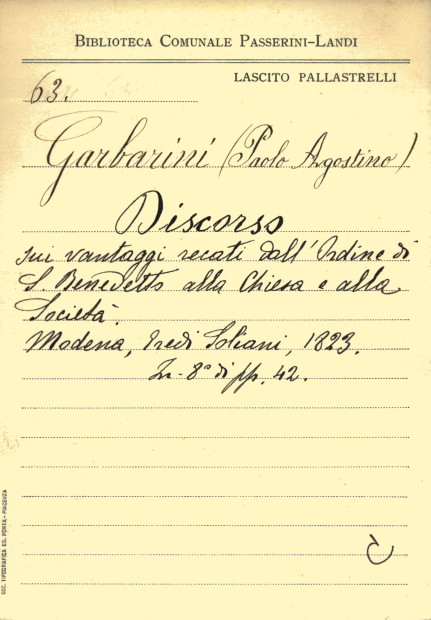 BIBLIOTECA COMUNALE PASSERINI-LANDI
LASCITO PALLASTRELLI
63.
Garbarini (Paolo Agostino)
Discorso
sui vantaggi recati dall'Ordine di
S. Benedetto alla Chiesa e alla
Società.
Modena, Eredi Soliani, 1823.
In-8° di pp. 42.
SOC. TIPOGRAFICA ED. PORTA - PIACENZA